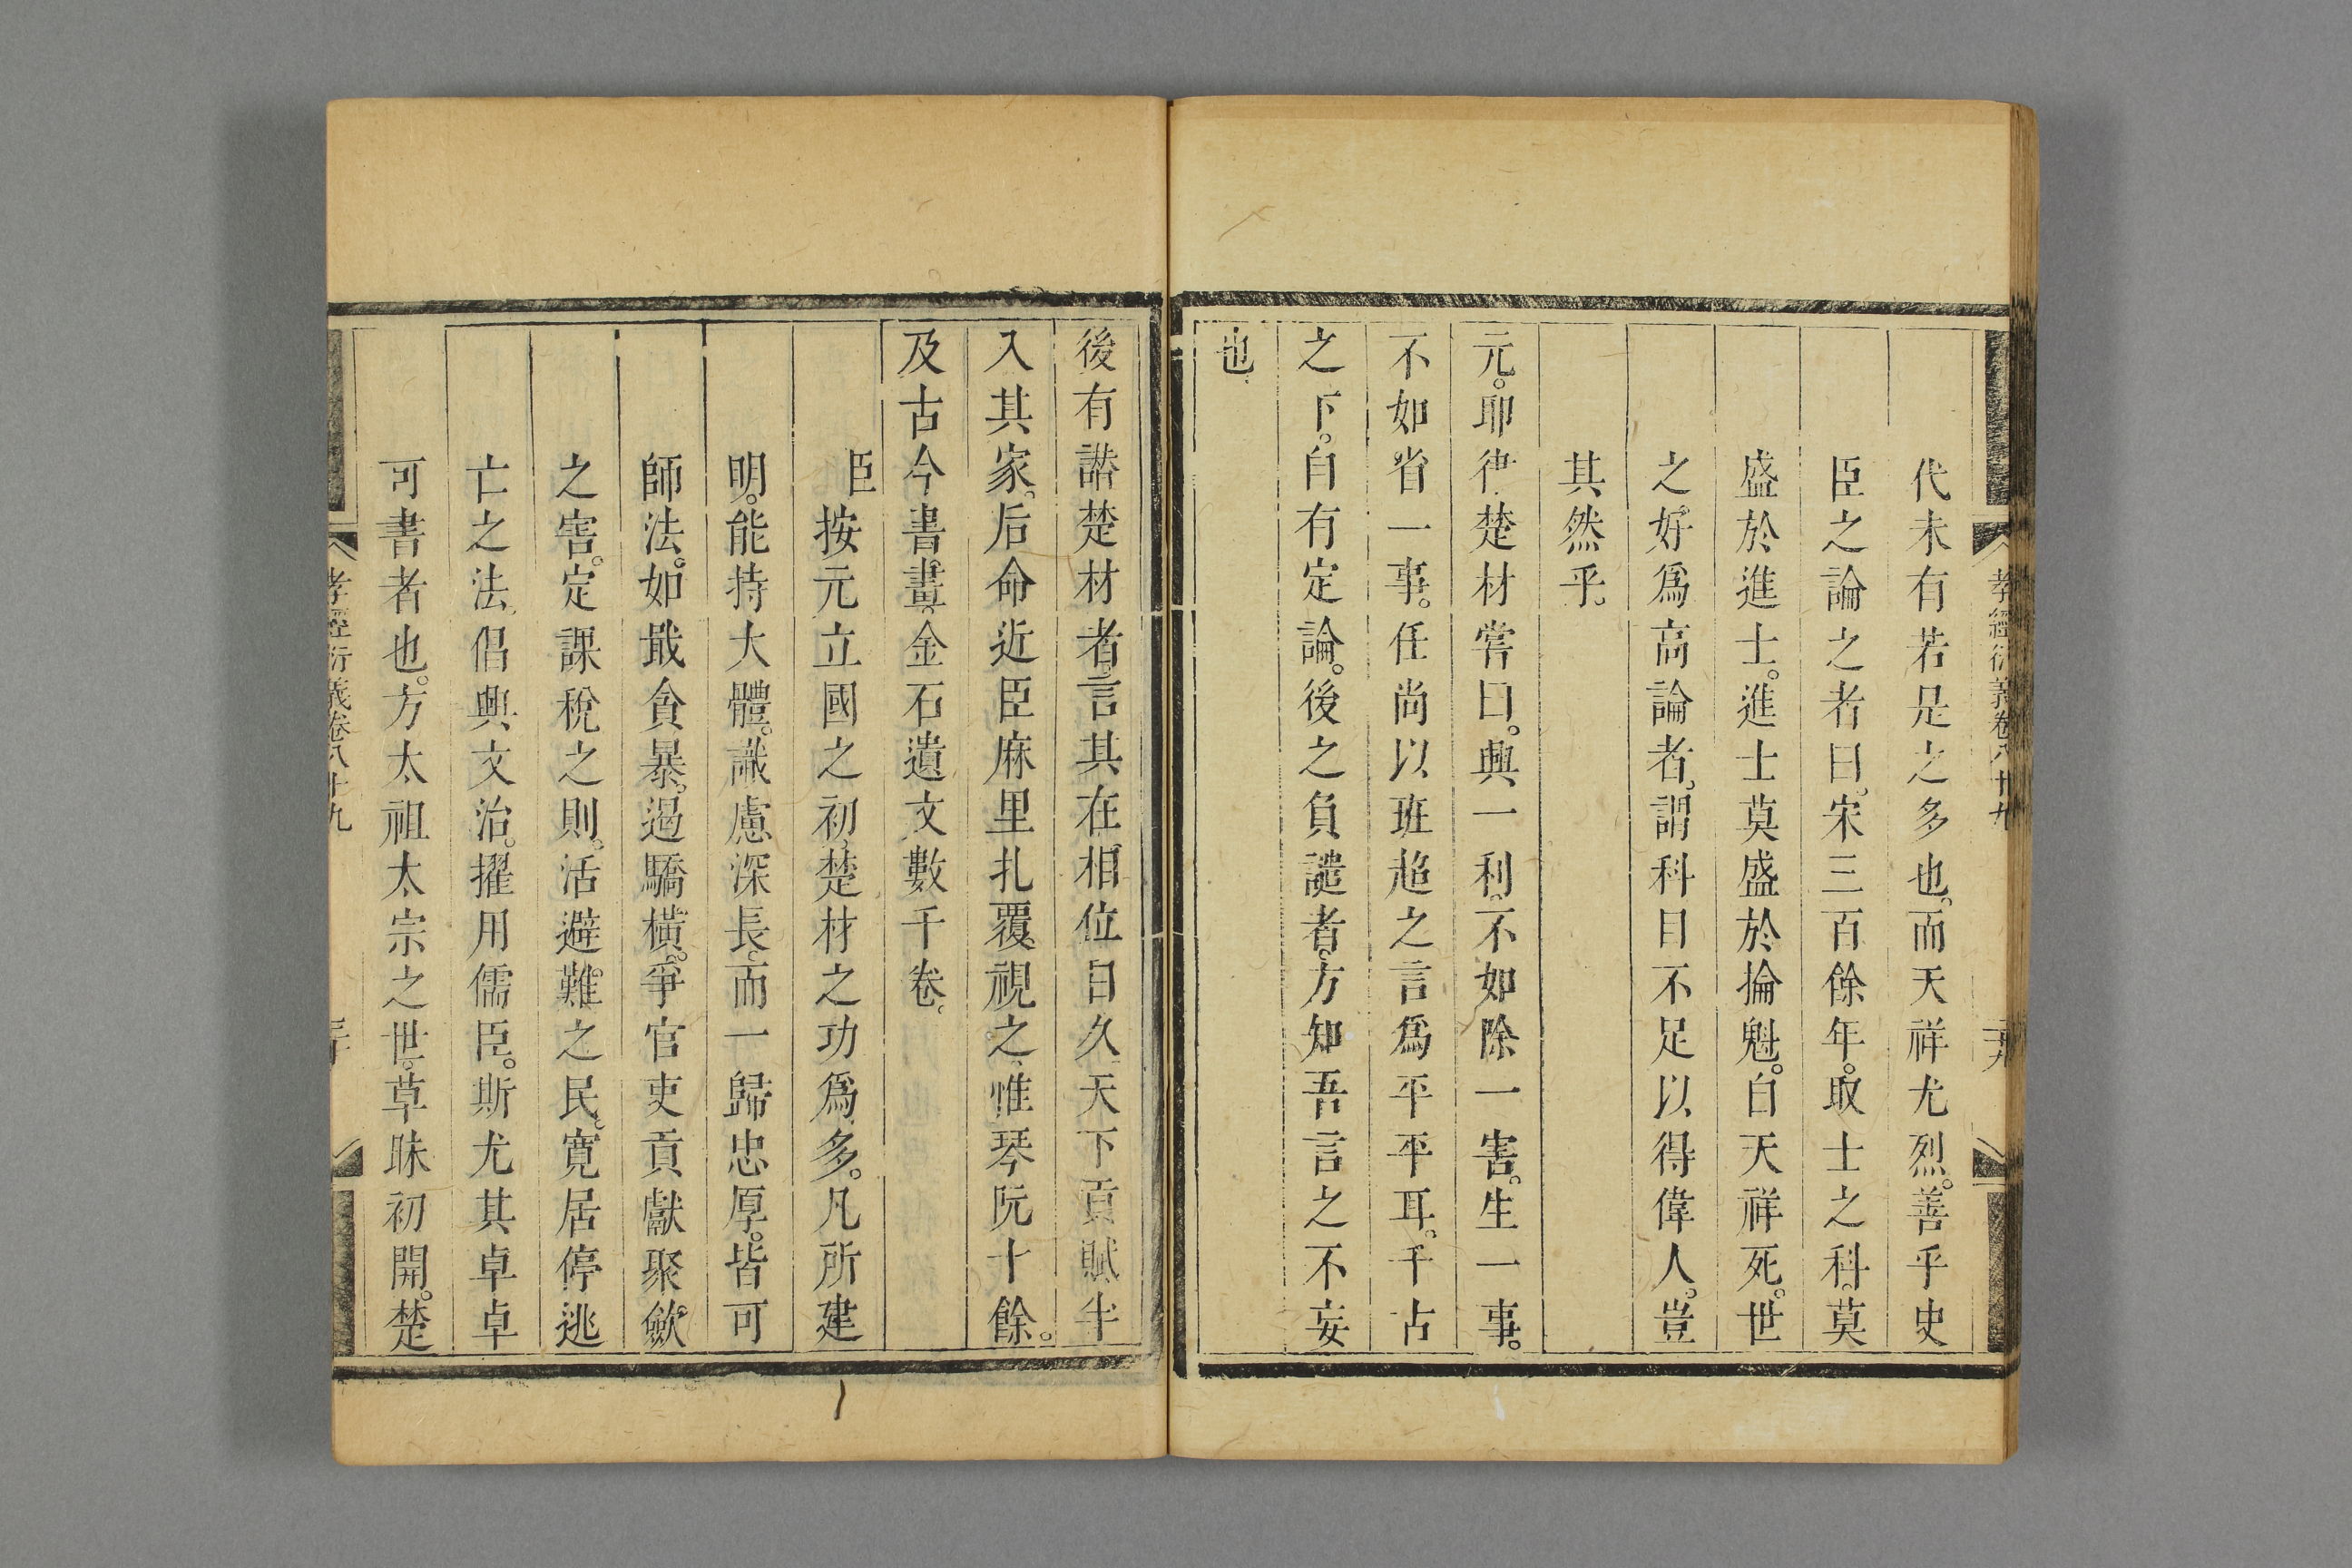 孝經衍義卷八十九
代未有若是之多也。而天祥尤烈。善乎史
臣之論之者曰。宋三百餘年。取士之科。莫
盛於進士。進士莫盛於掄魁。自天祥死。世
之好爲高論者。謂科目不足以得偉人。豈
其然乎。
元。耶律楚材嘗曰。興一利。不如除一害。生一事。
不如省一事。任尚以班超之言爲平平耳。千古
之下。自有定論。後之負譴者。方知吾言之不妄
也
後有譖楚材者。言其在相位日久。天下貢賦半
入其家。后命近臣麻里扎覆視之。惟琴阮十餘。
及古今書畫。金石遺文數千卷。
臣按元立國之初。楚材之功爲多。凡所建
明。能持大體。識慮深長。而一歸忠厚。皆可
師法。如戢貪暴。過驕橫。爭官吏貢獻聚歛
之害。定課稅之則。活避難之民。寬居停逃
亡之法。倡興文治。擢用儒臣。斯尤其卓卓
可書者也。方太祖太宗之世。草昧初開。楚
孝經衍義卷八十九